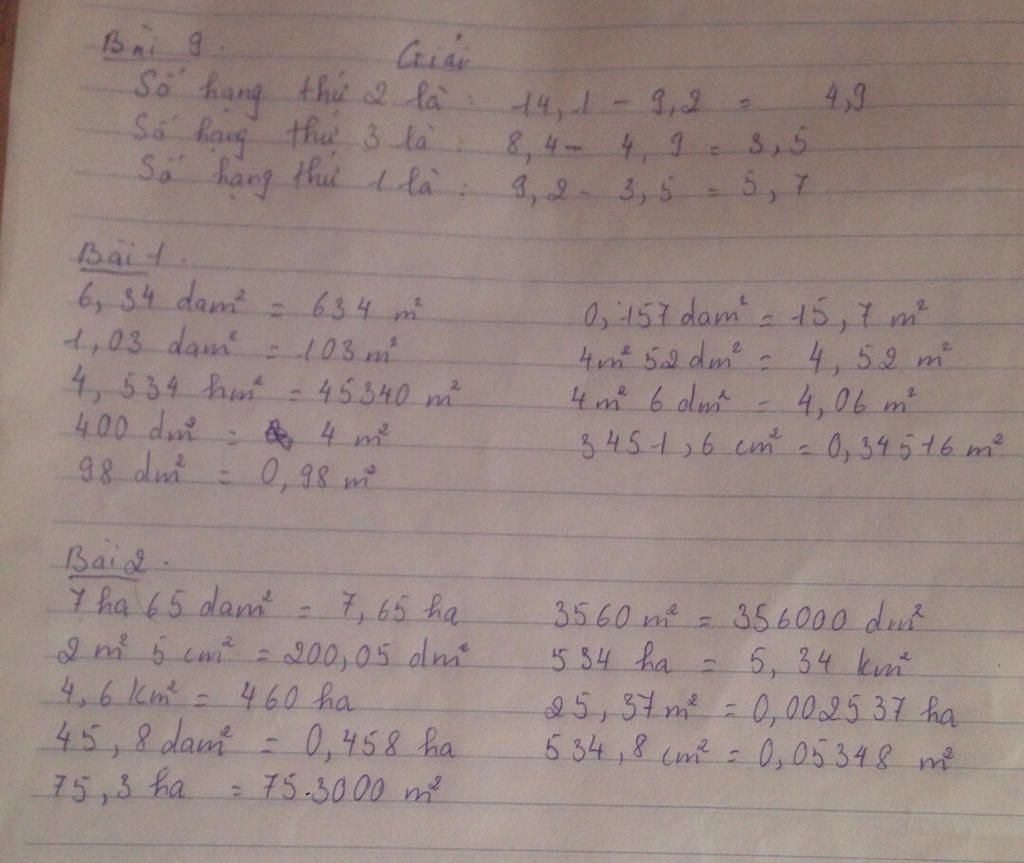 Bài 9.
Giải
Số hạng thứ 2 là : 14,1 - 9,2 = 4,9
Số hạng thứ 3 là : 8,4 - 4,9 = 3,5
Số hạng thứ 1 là : 9,2 - 3,5 = 5,7
Bài 1.
6,34 dam² = 634 m²
1,03 dam² = 103 m²
4,534 hm² = 45340 m²
400 dm² = 4 m²
98 dm² = 0,98 m²
0,157 dam² = 15,7 m²
4m² 52 dm² = 4,52 m²
4m² 6 dm² = 4,06 m²
3451,6 cm² = 0,34516 m²
Bài 2.
7 ha 65 dam² = 7,65 ha
2 m² 5 cm² = 200,05 dm²
4,6 km² = 460 ha
45,8 dam² = 0,458 ha
75,3 ha = 75.3000 m²
3560 m² = 356000 dm²
534 ha = 5,34 km²
25,37 m² = 0,002537 ha
534,8 cm² = 0,05348 m²